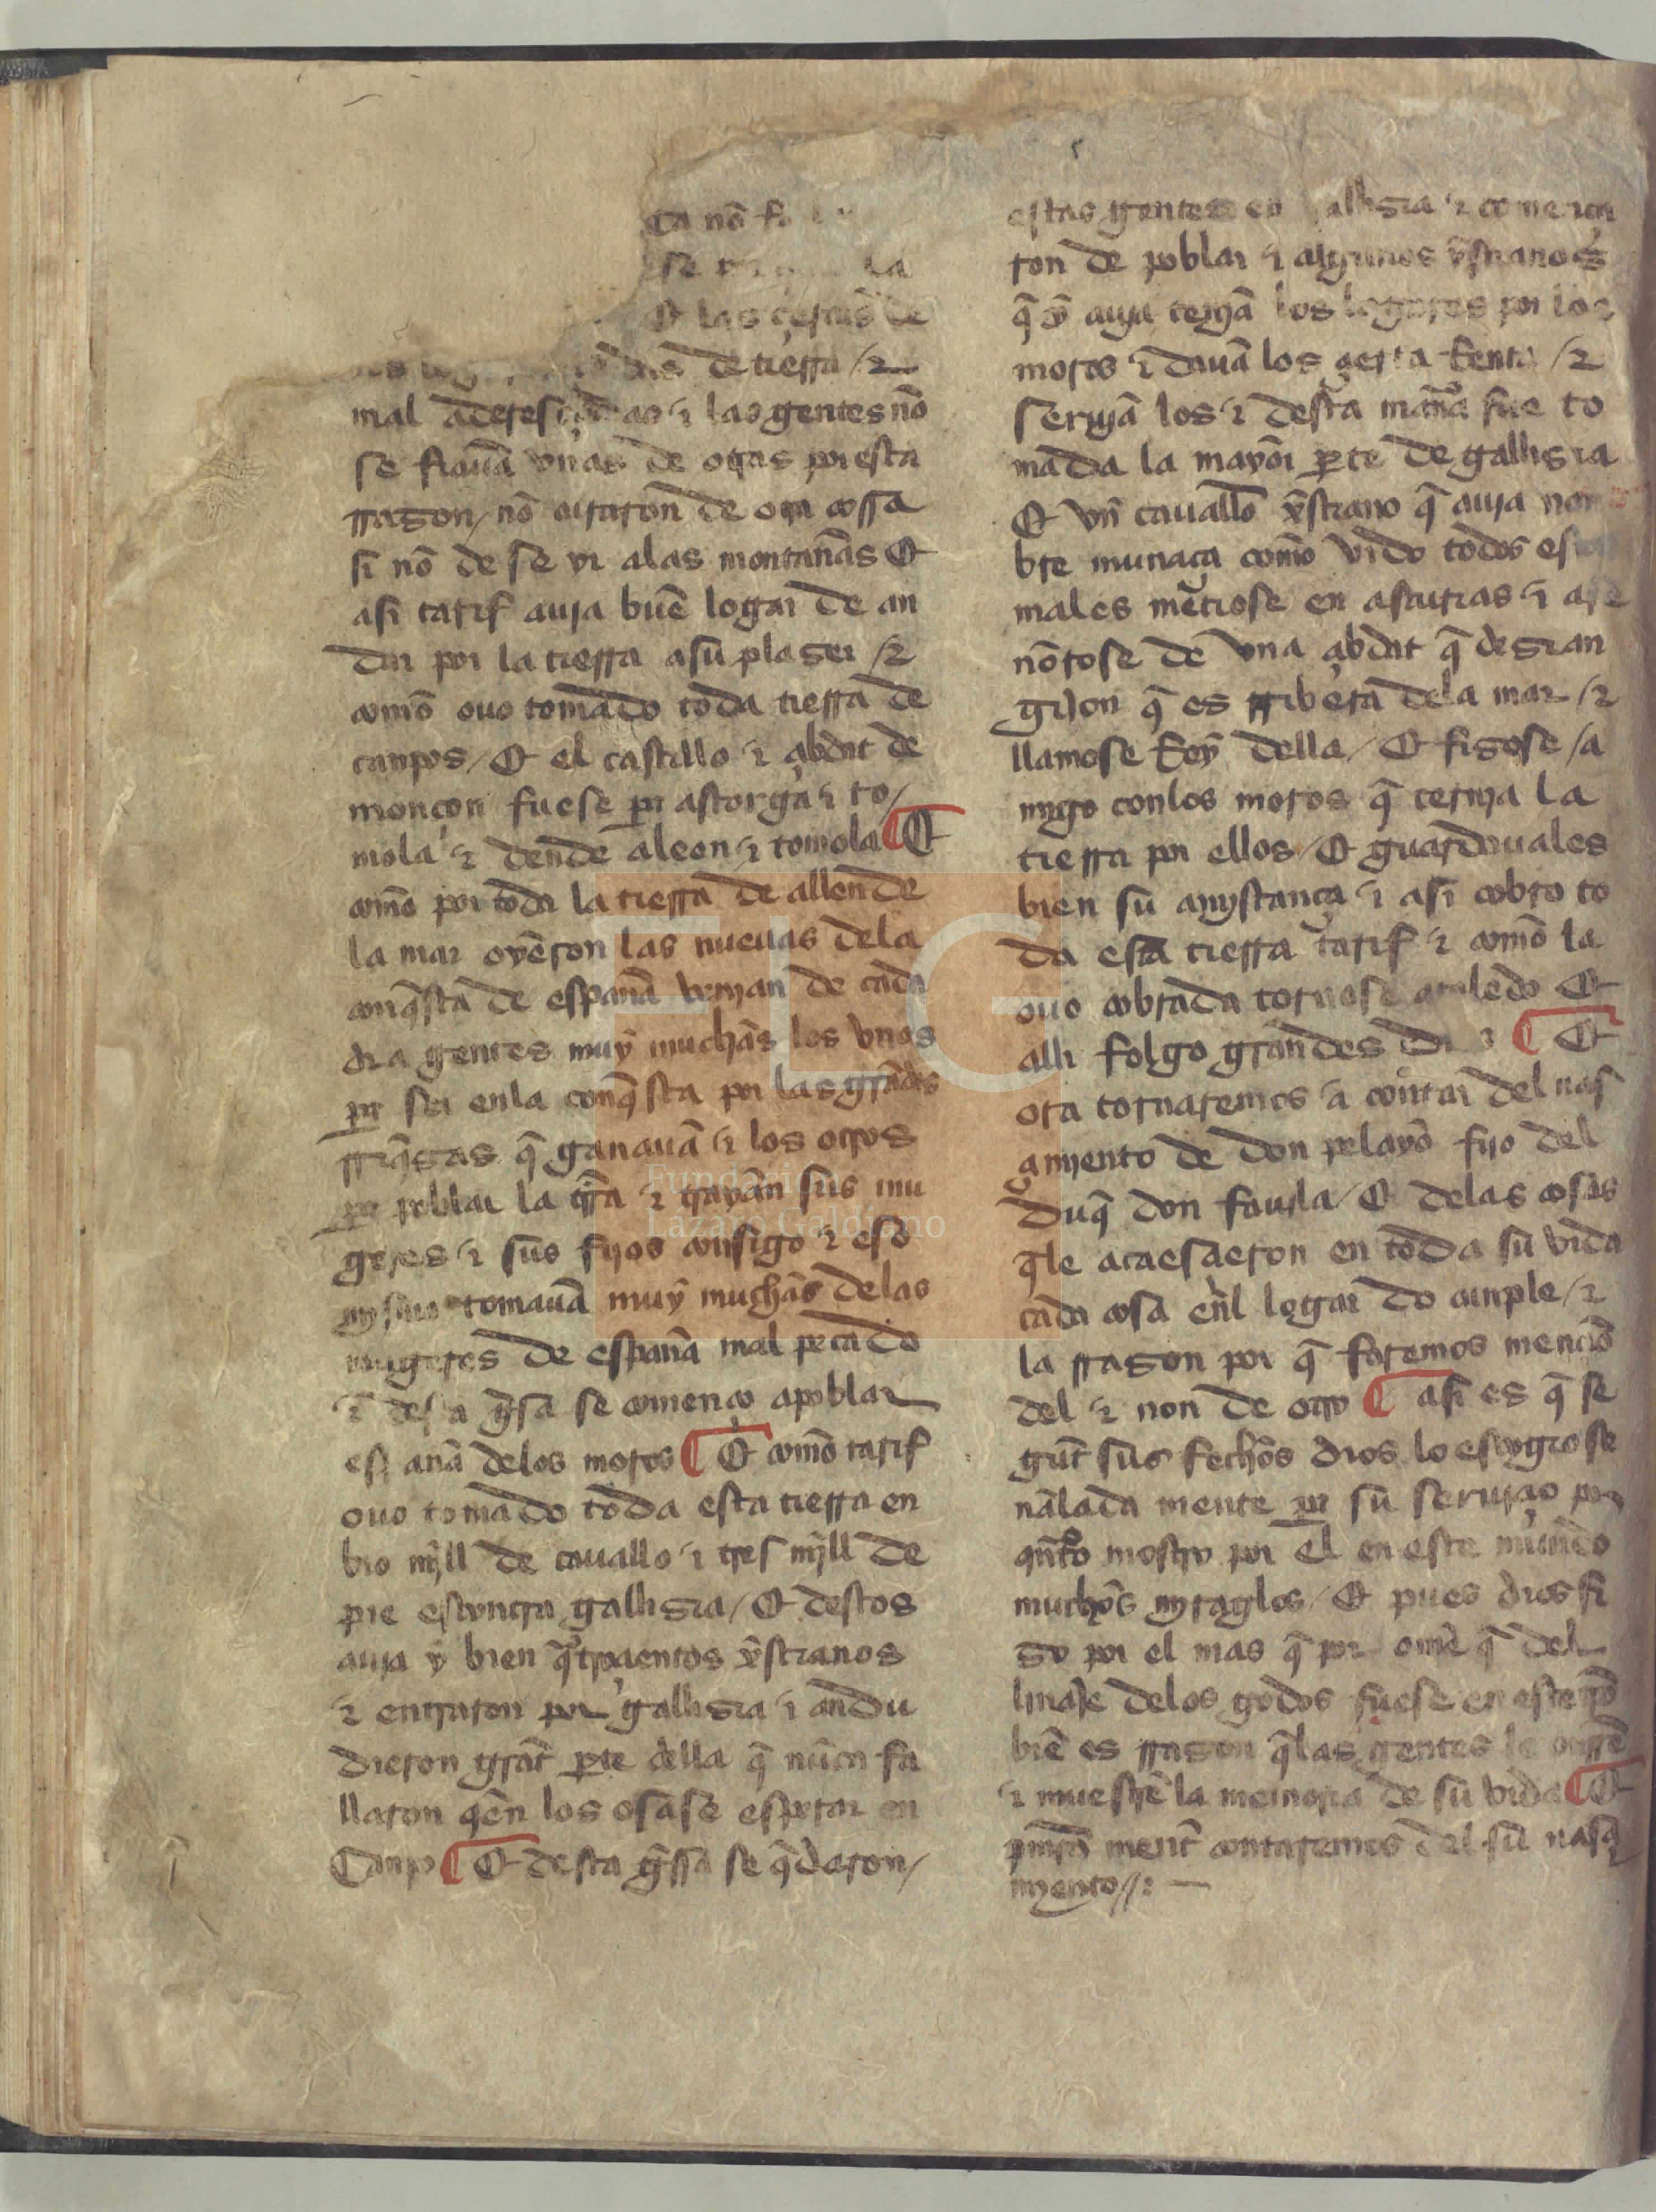 Ca nõ
se
Et las
de tierra / τ
mal τ las gentes nõ
se fiauã vnas de otras por esta
rrazon / nõ curaron de otra cossa
si nõ de se yr alas montañas Et
asi tarif auja buẽ logar de an
dar por la tierra a su plazer / τ
comõ ouo tomado toda tierra de
canpos / Et el castillo τ çibdat de
monçon fuese por astorga τ to /
mola τ dende a leon τ tomola ¶ Et
comõ por toda la tierra de allende
la mar oyerõn las nueuas dela
conq̃sta de españa venjan de cada
dia gentes muy muchas los vnos
por ser enla conq̃sta por las grãdes
rriq̃zas q̃ ganauã τ los otros
por poblar la trr̃a τ trayan sus mu
geres τ sus fijos consigo τ eso
mysmo tomauã muy muchas delas
mugeres de españa mal pecado
τ desta g̃sa se començo a poblar
españa delos moros ¶ Et comõ tarif
ouo tomado toda esta tierra en
bio mjll de cauallo τ tres mjll de
pie escontra gallizia / Et destos
auja y bien q̃troçientos xp̃stianos
τ entraron por gallizia τ andu
dieron grãt perte della q̃ nũca fa
llaron q̃en los osase esperar en
Canpo ¶ Et desta g̃ssa se q̃daron /
estas gentes en gallizia τ comença
ron de poblar τ algunos xp̃stianos
q̃ y auja tenjã los logares por los
moros τ dauã los çerta Renta / τ
serujã los τ desta mañra fue to
mada la mayor perte de gallizia
Et vn cauallo xp̃stiano q̃ auja non
bre munaça comõ vido todos estos
males metiose en asturias τ apo
derose de vna çibdat q̃ dezian
gijon q̃ es rribera dela mar / τ
llamose Rey della / Et fizose / a
mygo conlos moros q̃ tenja la
tierra por ellos / Et guardouales
bien su amystança τ asi cobro to
da esa tierra tarif τ comõ la
ouo cobrada tornose a toledo Et
alli folgo grandes dias ¶ Et
ora tornaremos a contar del nas
çamjento de don pelayo fijo del
duq̃ don fauila / Et delas cosas
q̃le acaesçieron en toda su vida
cada cosa enl logar do cunple / τ
la rrazon por q̃ faremos mençiõ
del τ non de otro ¶ asi es q̃ se
gũt sus fechos dios lo escogio se
ñalada mente por su seruiçio por
qñto mostro por el en este mundo
muchos myraglos / Et pues dios fi
zo por el mas q̃ por ome q̃ del
linaje delos godos fuese en este tp̃o
biẽ es rrazon q̃las gentes le onrrẽ
τ muestrẽ la memoria de su vida ¶ Et
primerã ment contaremos del su nasçi
mjento //: —
FLG
Fundación
Lázaro Galdiano